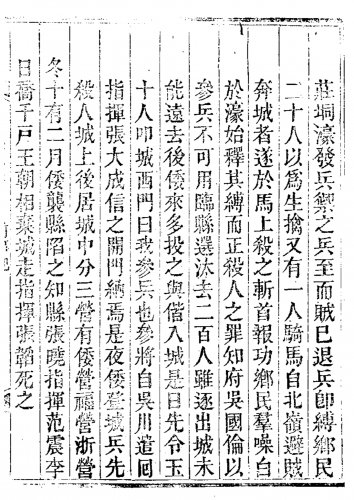 莊垌濠發兵禦之兵至而賊已退兵卽縛鄉民
二十人以爲生擒又有一人騎馬自北嶺避賊
奔城者遂於馬上殺之斬首報功鄉民羣噪白
於濠始釋其縛而正殺人之罪知府吳國倫以
參兵不可用臨縣選汰去二百人雖逐出城未
能遠去後倭來多投之與偕入城是日先令五
十人叩城西門曰我參兵也參將自吳川遣回
指揮張大成信之開門納焉是夜倭登城兵先
殺人城上後居城中分三營有倭營福營浙營
冬十有二月倭襲縣陷之知縣張指揮范震李
日喬千戸王朝相棄城走指揮張韜死之